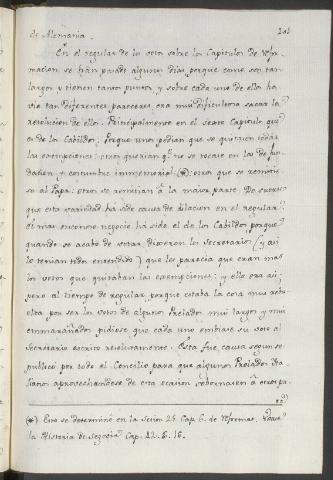 201
de Alemania.
En el regular de los votos sobre los Capitulos de refor-
macion se han pasado algunos dias, porque como son tan
largos y tienen tantos puntos, y sobre cada uno de ellos ha-
via tan diferentes pareceres, era mui dificultoso sacar la
resolucion de ellos. Principalmente en el sexto Capitulo que
es de los Cabildos, porque unos pedian que se quitasen todas
las exempciones: otros querian q.e no se tocase en las de fun-
dacion, y costumbre inmemorial: (*) otros que se remitie
se al Papa: otros se remitian à la maior parte. De suerte
que esta variedad ha sido causa de dilacion en el regular.
El mas enconoso negocio ha sido el de los Cabildos porque
quando se acabò de votar dixeron los Secretarios (y asi
lo tenian todos entendido) que les parecia que eran mas
los votos que quitaban las exempciones: y ello era asi;
pero al tiempo de regular, porque estaba la cosa mui rebu
elta por ser los votos de algunos Prelados mui largos y mui
enmarañados pidiose que cada uno embiase su voto al
Secretario escrito resolutamente. Esta fue causa segun se
publicò por todo el Concilio para que algunos Prelados Ita-
lianos aprovechandose de esta ocasion sobornasen à otros pa-
(*) Esto se determinò en la Sesion 25 Cap. 6. de Reformat.
la Historia de Segovia Cap. 42. §. 16.